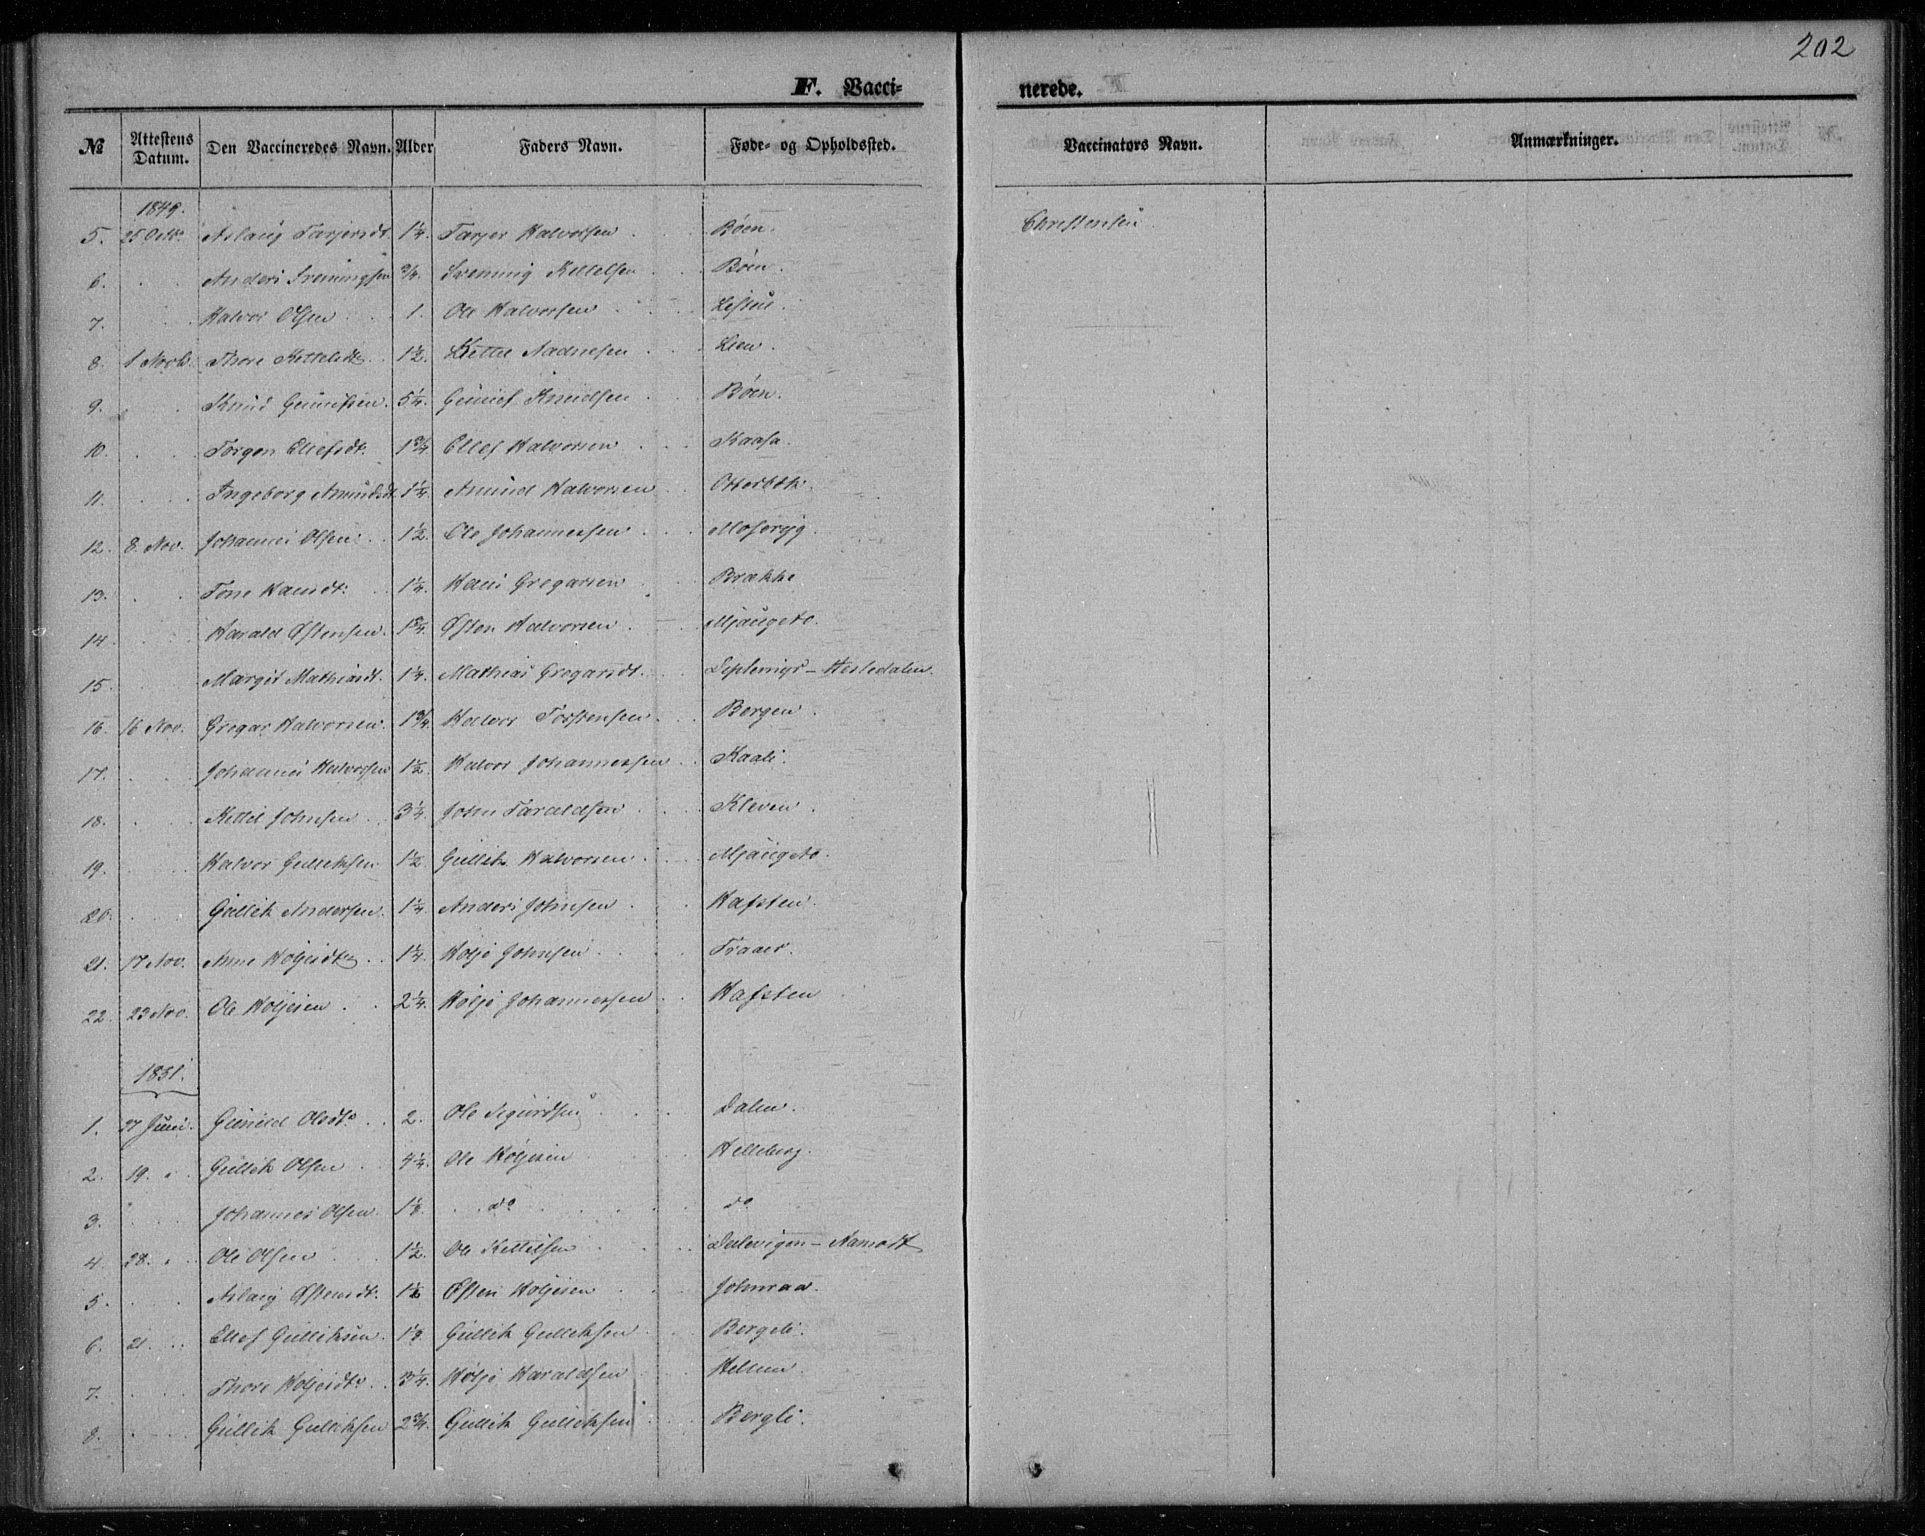 202
F. Vaccinerede.
№ Attestens Datum. Den Vaccineredes Navn. Alder Faders Navn. Føde- og Opholdssted. Vaccinators Navn. Anmærkninger.
1849.
5. 25 Octbr. Aslaug Tarjersdt. 1¼. Tarjer Halvorsen Bøen. Christensen
6. Anders Svenningsen ¾. Svenning Kittelsen Bøen.
7. Halvor Olsen 1. Ole Halvorsen Listul.
8. 1 Novb. Thore Kittelsdt. 1½. Kittel Aadnesen Lien.
9. Knud Gunnifsen. 5¼. Gunnif Knudsen Bøen.
10. Torgon Ellefsdt. 1¾ Ellef Halvorsen Kaasa.
11. Ingeborg Amundsdt. 1¼. Amund Halvorsen Otterbæk.
12. 8. Nov. Johannes Olsen. 1½. Ole Johannessen Moseryg.
13. Tone Hansdt. 1¼. Hans Gregarsen Brække
14. Harald Østensen. 1¾. Østen Halvorsen Mjaugeto.
15. Margit Mathiasdt. 1¼. Mathias Gregarsdt. - Hesledalen.
16. 16 Nov. Gregar Halvorsen. 1¾. Halvor Torstensen. Bergen.
17. Johannes Halvorsen 1½. Halvor Johannessen Kaali.
18. Kittel Johnsen 3¼. John Taraldsen Kleven.
19. Halvor Gulliksen 1½ Gullik Halvorsen Mjaugeto.
20. Gullik Andersen. 1¼. Anders Johnsen Hafsten.
21. 17 Nov. Anne Høljesdtr. 1¼. Hølje Johnsen Traaer.
22. 23 Nov. Ole Høljesen 2¼. Hølje Johannessen Hafsten
1851.
1. 27 Juni. Gunild Olsdtr. 2. Ole Sigurdsen Dalen.
2. 19. " Gullik Olsen 4¼. Ole Høljesen Helleberg.
3. " Johannes Olsen. 1½. do do
4. 28. " Ole Olsen 1½. Ole Kittelsen Dalevigen -
5. Aslaug Østensdt. 1½ Østen Høljesen Johnraa.
6. 21. Ellef Gulliksen. 1½. Gullik Gulliksen Bergeli.
7. Thore Høljesdtr. 3¼. Hølje Haraldsen
8. Gullik Gulliksen 2¾. Gullik Gulliksen Bergli.